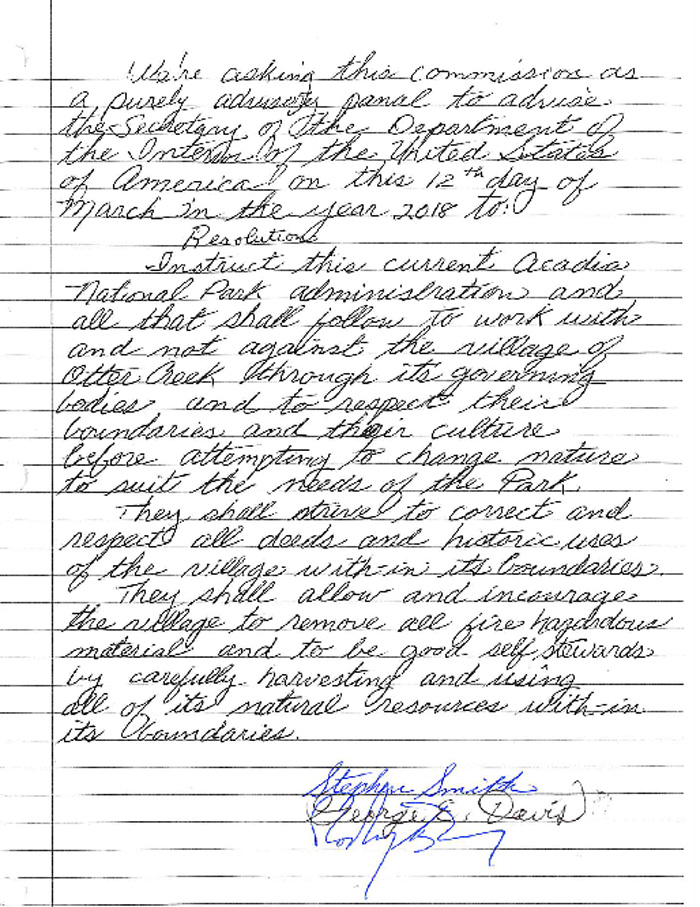 We're asking this commission as
a purely advisory panal to advise
the Secretary of the Department of
the Interior of the United States
of America on this 12th day of
March in the year 2018 to:
Resolutions
Instruct this current Acadia
National Park administration and
all that shall follow to work with
and not against the village of
Otter Creek through its governing
bodies and to respect their
boundaries and their culture
before attempting to change nature
to suit the needs of the Park.
They shall strive to correct and
respect all deeds and historic uses
of the village with-in its boundaries.
They shall allow and incourage
the village to remove all fire hazardous
material and to be good self stewards
by carefully harvesting and using
all of its natural resources with-in
its boundaries.
Stephen Smith
George E. Davis